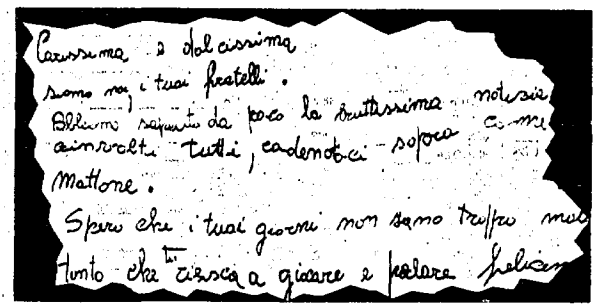 Carissima e dolcissima
siamo noi, i tuoi fratelli.
Abbiam saputo da poco la bruttissima notizia
coinvolti tutti, cadendoci sopra come
mattone.
Spero che i tuoi giorni non siano troppo
tanto che tu riesca a giocare e parlare